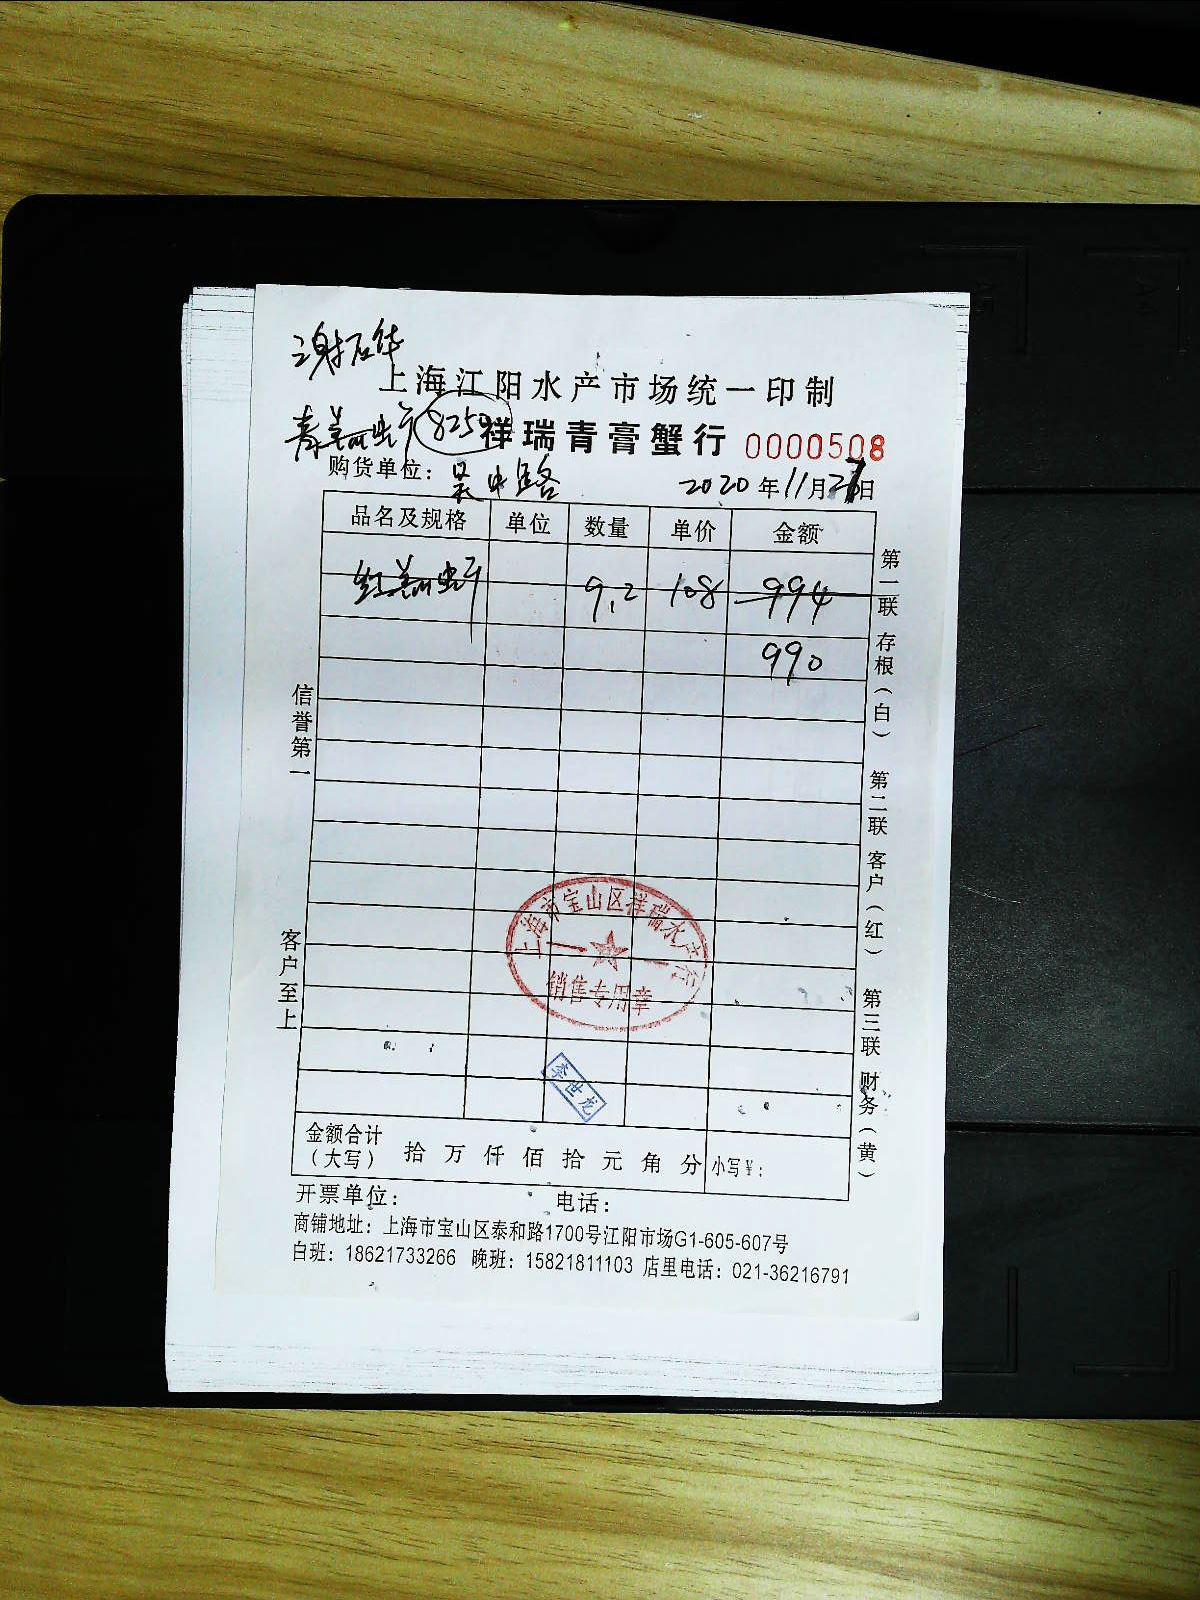 谢石华
上海江阳水产市场统一印制
8250
祥瑞青膏蟹行 0000508
购货单位：吴中路 2020年11月27日
品名及规格 单位 数量 单价 金额
9.2 108 994
990
信誉第一
客户至上
第一联 存根（白） 第二联 客户（红） 第三联 财务（黄）
上海市宝山区祥瑞水产行
销售专用章
李世龙
金额合计
（大写） 拾 万 仟 佰 拾 元 角 分 小写￥：
开票单位： 电话：
商铺地址：上海市宝山区泰和路1700号江阳市场G1-605-607号
白班：18621733266 晚班：15821811103 店里电话：021-36216791